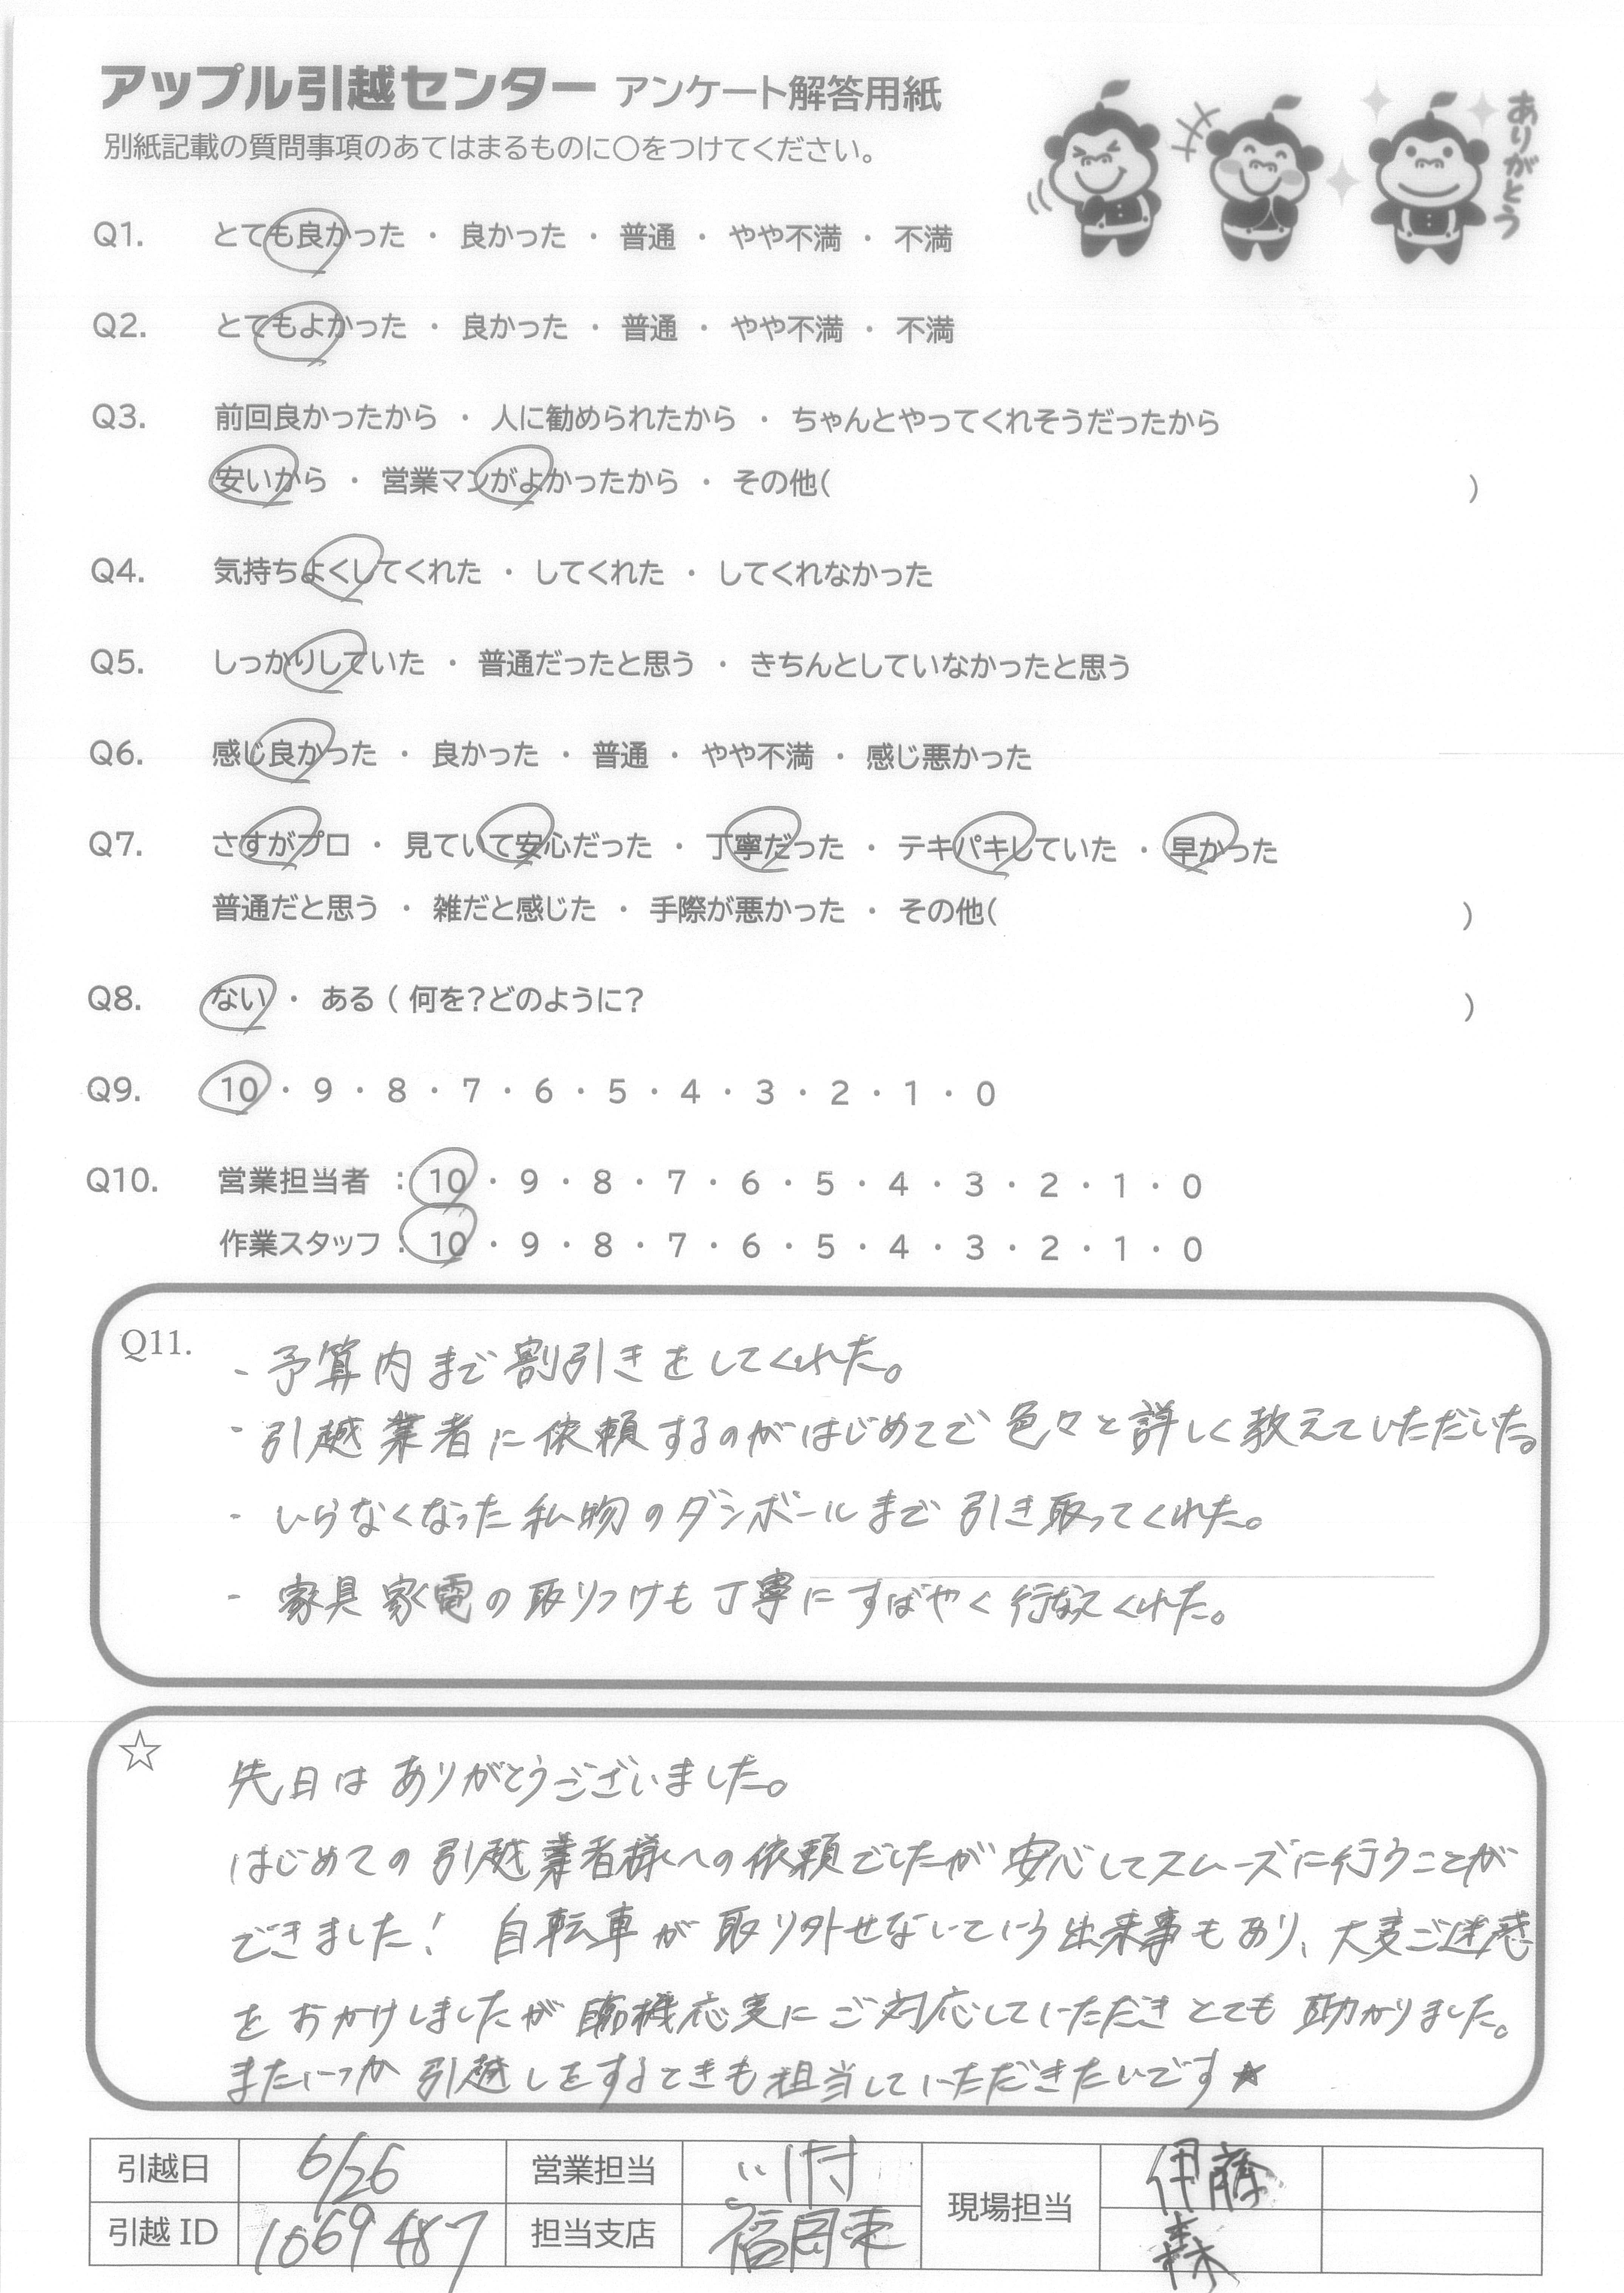 アップル引越センター アンケート解答用紙
別紙記載の質問事項のあてはまるものに○をつけてください。
ありがとう
Q1. とても良かった ・ 良かった ・ 普通 ・ やや不満 ・ 不満
Q2. とてもよかった ・ 良かった ・ 普通 ・ やや不満 ・ 不満
Q3. 前回良かったから ・ 人に勧められたから ・ ちゃんとやってくれそうだったから
安いから ・ 営業マンがよかったから ・ その他( )
Q4. 気持ちよくしてくれた ・ してくれた ・ してくれなかった
Q5. しっかりしていた ・ 普通だったと思う ・ きちんとしていなかったと思う
Q6. 感じ良かった ・ 良かった ・ 普通 ・ やや不満 ・ 感じ悪かった
Q7. さすがプロ ・ 見ていて安心だった ・ 丁寧だった ・ テキパキしていた ・ 早かった
普通だと思う ・ 雑だと感じた ・ 手際が悪かった ・ その他( )
Q8. ない ・ ある ( 何を?どのように? )
Q9. 10 ・ 9 ・ 8 ・ 7 ・ 6 ・ 5 ・ 4 ・ 3 ・ 2 ・ 1 ・ 0
Q10. 営業担当者 : 10 ・ 9 ・ 8 ・ 7 ・ 6 ・ 5 ・ 4 ・ 3 ・ 2 ・ 1 ・ 0
作業スタッフ : 10 ・ 9 ・ 8 ・ 7 ・ 6 ・ 5 ・ 4 ・ 3 ・ 2 ・ 1 ・ 0
Q11. - 予算内まで割引きをしてくれた。
- 引越業者に依頼するのがはじめてで色々と詳しく教えていただいた。
- いらなくなった私物のダンボールまで引き取ってくれた。
- 家具家電の取りつけも丁寧にすばやく行なってくれた。
☆ 先日はありがとうございました。
はじめての引越業者様への依頼でしたが安心してスムーズに行うことが
できました! 自転車が取り外せないという出来事もあり、大変ご迷惑
をおかけしましたが臨機応変にご対応していただきとても助かりました。
またいつか引越しをするときも担当していただきたいです★
引越日 6/26 営業担当 現場担当 伊藤
引越ID 1069487 担当支店 福岡東 森